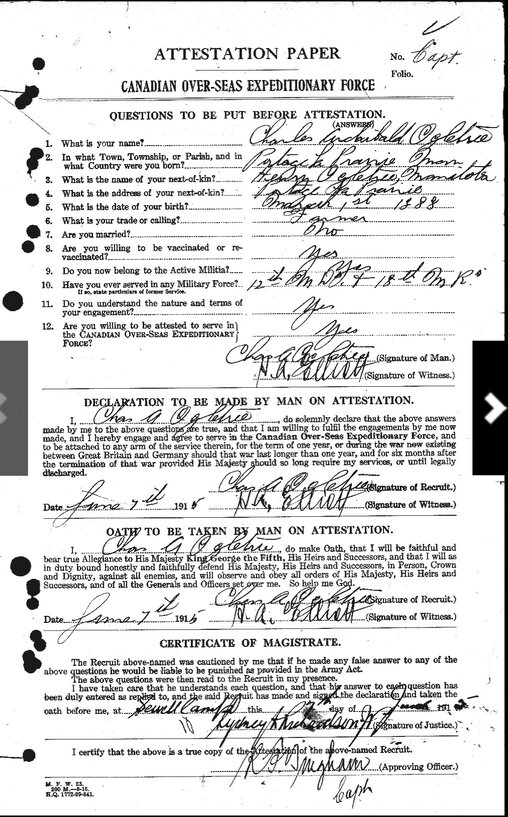 ATTESTATION PAPER
No. Capt.
Folio.
CANADIAN OVER-SEAS EXPEDITIONARY FORCE
QUESTIONS TO BE PUT BEFORE ATTESTATION.
(ANSWERS)
1. What is your name? Charles Archibald Ogletree
2. In what Town, Township, or Parish, and in what Country were you born? Portage la Prairie Man.
3. What is the name of your next-of-kin? Henry Ogletree, Manitoba
4. What is the address of your next-of-kin? Portage la Prairie
5. What is the date of your birth? March 1st 1888
6. What is your trade or calling? Farmer
7. Are you married? No
8. Are you willing to be vaccinated or re-vaccinated? Yes
9. Do you now belong to the Active Militia? Yes
10. Have you ever served in any Military Force? 12th M.D. & 18th M.R.
If so, state particulars of former Service.
11. Do you understand the nature and terms of your engagement? Yes
12. Are you willing to be attested to serve in the CANADIAN OVER-SEAS EXPEDITIONARY FORCE? Yes
Chas A Ogletree (Signature of Man.)
H. A. Elliott (Signature of Witness.)
DECLARATION TO BE MADE BY MAN ON ATTESTATION.
I, Chas A Ogletree, do solemnly declare that the above answers
made by me to the above questions are true, and that I am willing to fulfil the engagements by me now
made, and I hereby engage and agree to serve in the Canadian Over-Seas Expeditionary Force, and
to be attached to any arm of the service therein, for the term of one year, or during the war now existing
between Great Britain and Germany should that war last longer than one year, and for six months after
the termination of that war provided His Majesty should so long require my services, or until legally
discharged.
Chas A Ogletree (Signature of Recruit.)
Date June 7th 1915 H. A. Elliott (Signature of Witness.)
OATH TO BE TAKEN BY MAN ON ATTESTATION.
I, Chas A Ogletree, do make Oath, that I will be faithful and
bear true Allegiance to His Majesty King George the Fifth, His Heirs and Successors, and that I will as
in duty bound honestly and faithfully defend His Majesty, His Heirs and Successors, in Person, Crown
and Dignity, against all enemies, and will observe and obey all orders of His Majesty, His Heirs and
Successors, and of all the Generals and Officers set over me. So help me God.
Chas A Ogletree (Signature of Recruit.)
Date June 7th 1915 H. A. Elliott (Signature of Witness.)
CERTIFICATE OF MAGISTRATE.
The Recruit above-named was cautioned by me that if he made any false answer to any of the
above questions he would be liable to be punished as provided in the Army Act.
The above questions were then read to the Recruit in my presence.
I have taken care that he understands each question, and that his answer to each question has
been duly entered as replied to, and the said Recruit has made and signed the declaration and taken the
oath before me, at Sewell Camp this 7th day of June 1915
Sydney H Richardson J.P. (Signature of Justice.)
I certify that the above is a true copy of the Attestation of the above-named Recruit.
Bingham (Approving Officer.)
Capt
M. F. W. 23.
200 M.—8-15.
H.Q. 1772-39-841.